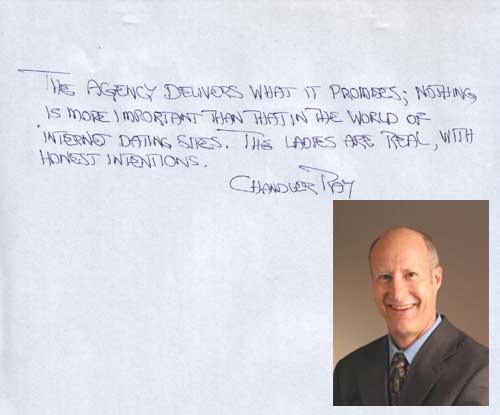 THE AGENCY DELIVERS WHAT IT PROMISES; NOTHING
IS MORE IMPORTANT THAN THAT IN THE WORLD OF
INTERNET DATING SITES. THE LADIES ARE REAL, WITH
HONEST INTENTIONS.
CHANDLER RAY